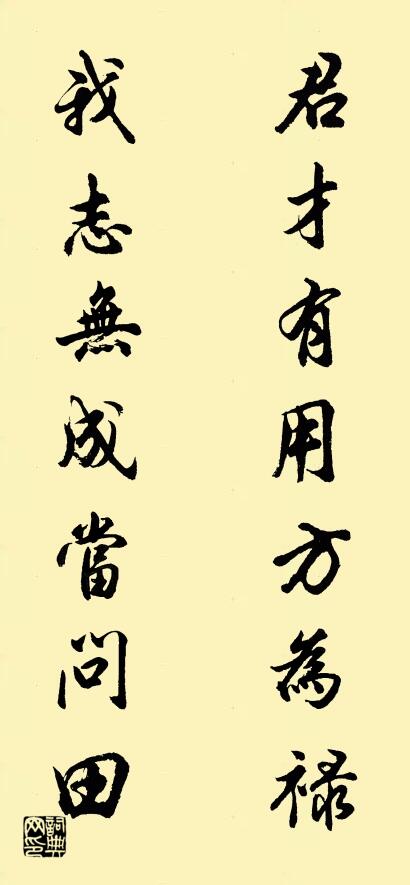 君才有用方為祿
我志無成當問田
詞典网印